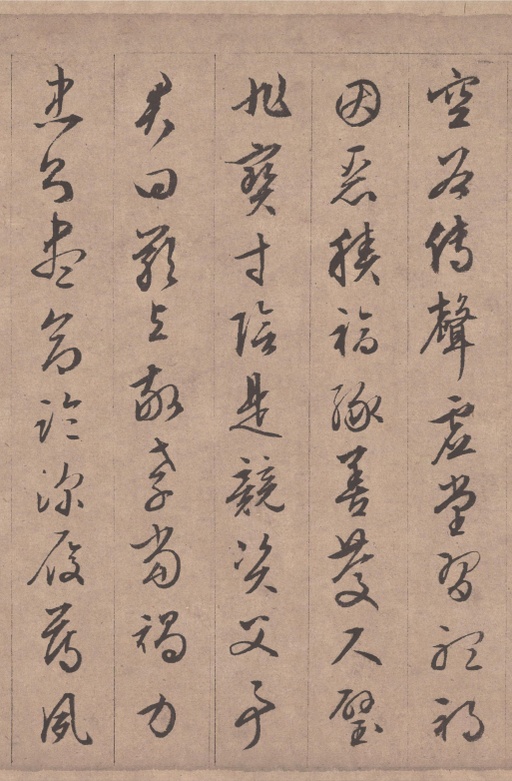 空谷傳聲虛堂習聽禍
因惡積福緣善慶尺璧
非寶寸陰是競資父事
君曰嚴與敬孝當竭力
忠則盡命臨深履薄夙